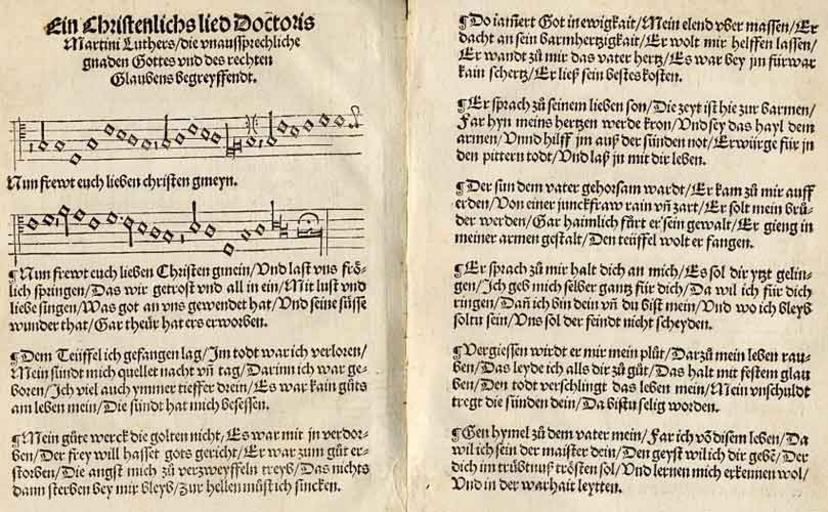 Ein Christenlichs lied Doctoris
Martini Luthers/die vnaussprechliche
gnaden Gottes vnd des rechten
Glaubens begreyffendt.
Nun frewt euch lieben christen gmeyn.
¶Nun frewt euch lieben Christen gmein/Vnd last vns frö-
lich springen/Das wir getrost vnd all in ein/Mit lust vnd
liebe singen/Was got an vns gewendet hat/Vnd seine süsse
wunder that/Gar theür hat ers erworben.
¶Dem Teüffel ich gefangen lag/Im todt war ich verloren/
Mein sündt mich quellet nacht vñ tag/Darinn ich war ge-
boren/Ich viel auch ymmer tieffer drein/Es war kain gůts
am leben mein/Die sündt hat mich besessen.
¶Mein gůte werck die golten nicht/Es war mit jn verdor-
ben/Der frey will hasset gots gericht/Er war zum gůt er-
storben/Die angst mich zů verzweyffeln treyb/Das nichts
dann sterben bey mir bleyb/Zur hellen můst ich sincken.
¶Do jamert Got in ewigkait/Mein elend vber massen/Er
dacht an sein barmhertzigkait/Er wolt mir helffen lassen/
Er wandt zů mir das vater hertz/Es war bey jm fürwar
kain schertz/Er ließ sein bestes kosten.
¶Er sprach zů seinem lieben son/Die zeyt ist hie zur barmen/
Far hyn meins hertzen werde kron/Vnd sey das hayl dem
armen/Vnnd hilff jm auß der sünden not/Erwürge für jn
den pittern todt/Vnd laß jn mit dir leben.
¶Der sun dem vater gehorsam wardt/Er kam zů mir auff
erden/Von einer junckfraw rain vñ zart/Er solt mein brů-
der werden/Gar haimlich fürt er sein gewalt/Er gieng in
meiner armen gestalt/Den teüffel wolt er fangen.
¶Er sprach zů mir halt dich an mich/Es sol dir ytzt gelin-
gen/Ich geb mich selber gantz für dich/Da wil ich für dich
ringen/Dañ ich bin dein vñ du bist mein/Vnd wo ich bleyb
soltu sein/Vns sol der feindt nicht scheyden.
¶Vergiessen wirdt er mir mein plůt/Darzů mein leben rau-
ben/Das leyde ich alls dir zů gůt/Das halt mit festem glau
ben/Den todt verschlingt das leben mein/Mein vnschuldt
tregt die sünden dein/Da bistu selig worden.
¶Gen hymel zů dem vater mein/Far ich võ disem leben/Da
wil ich sein der maister dein/Den geyst wil ich dir gebẽ/Der
dich im trübtnuß trösten sol/Vnd lernen mich erkennen wol/
Vnd in der warhait leytten.